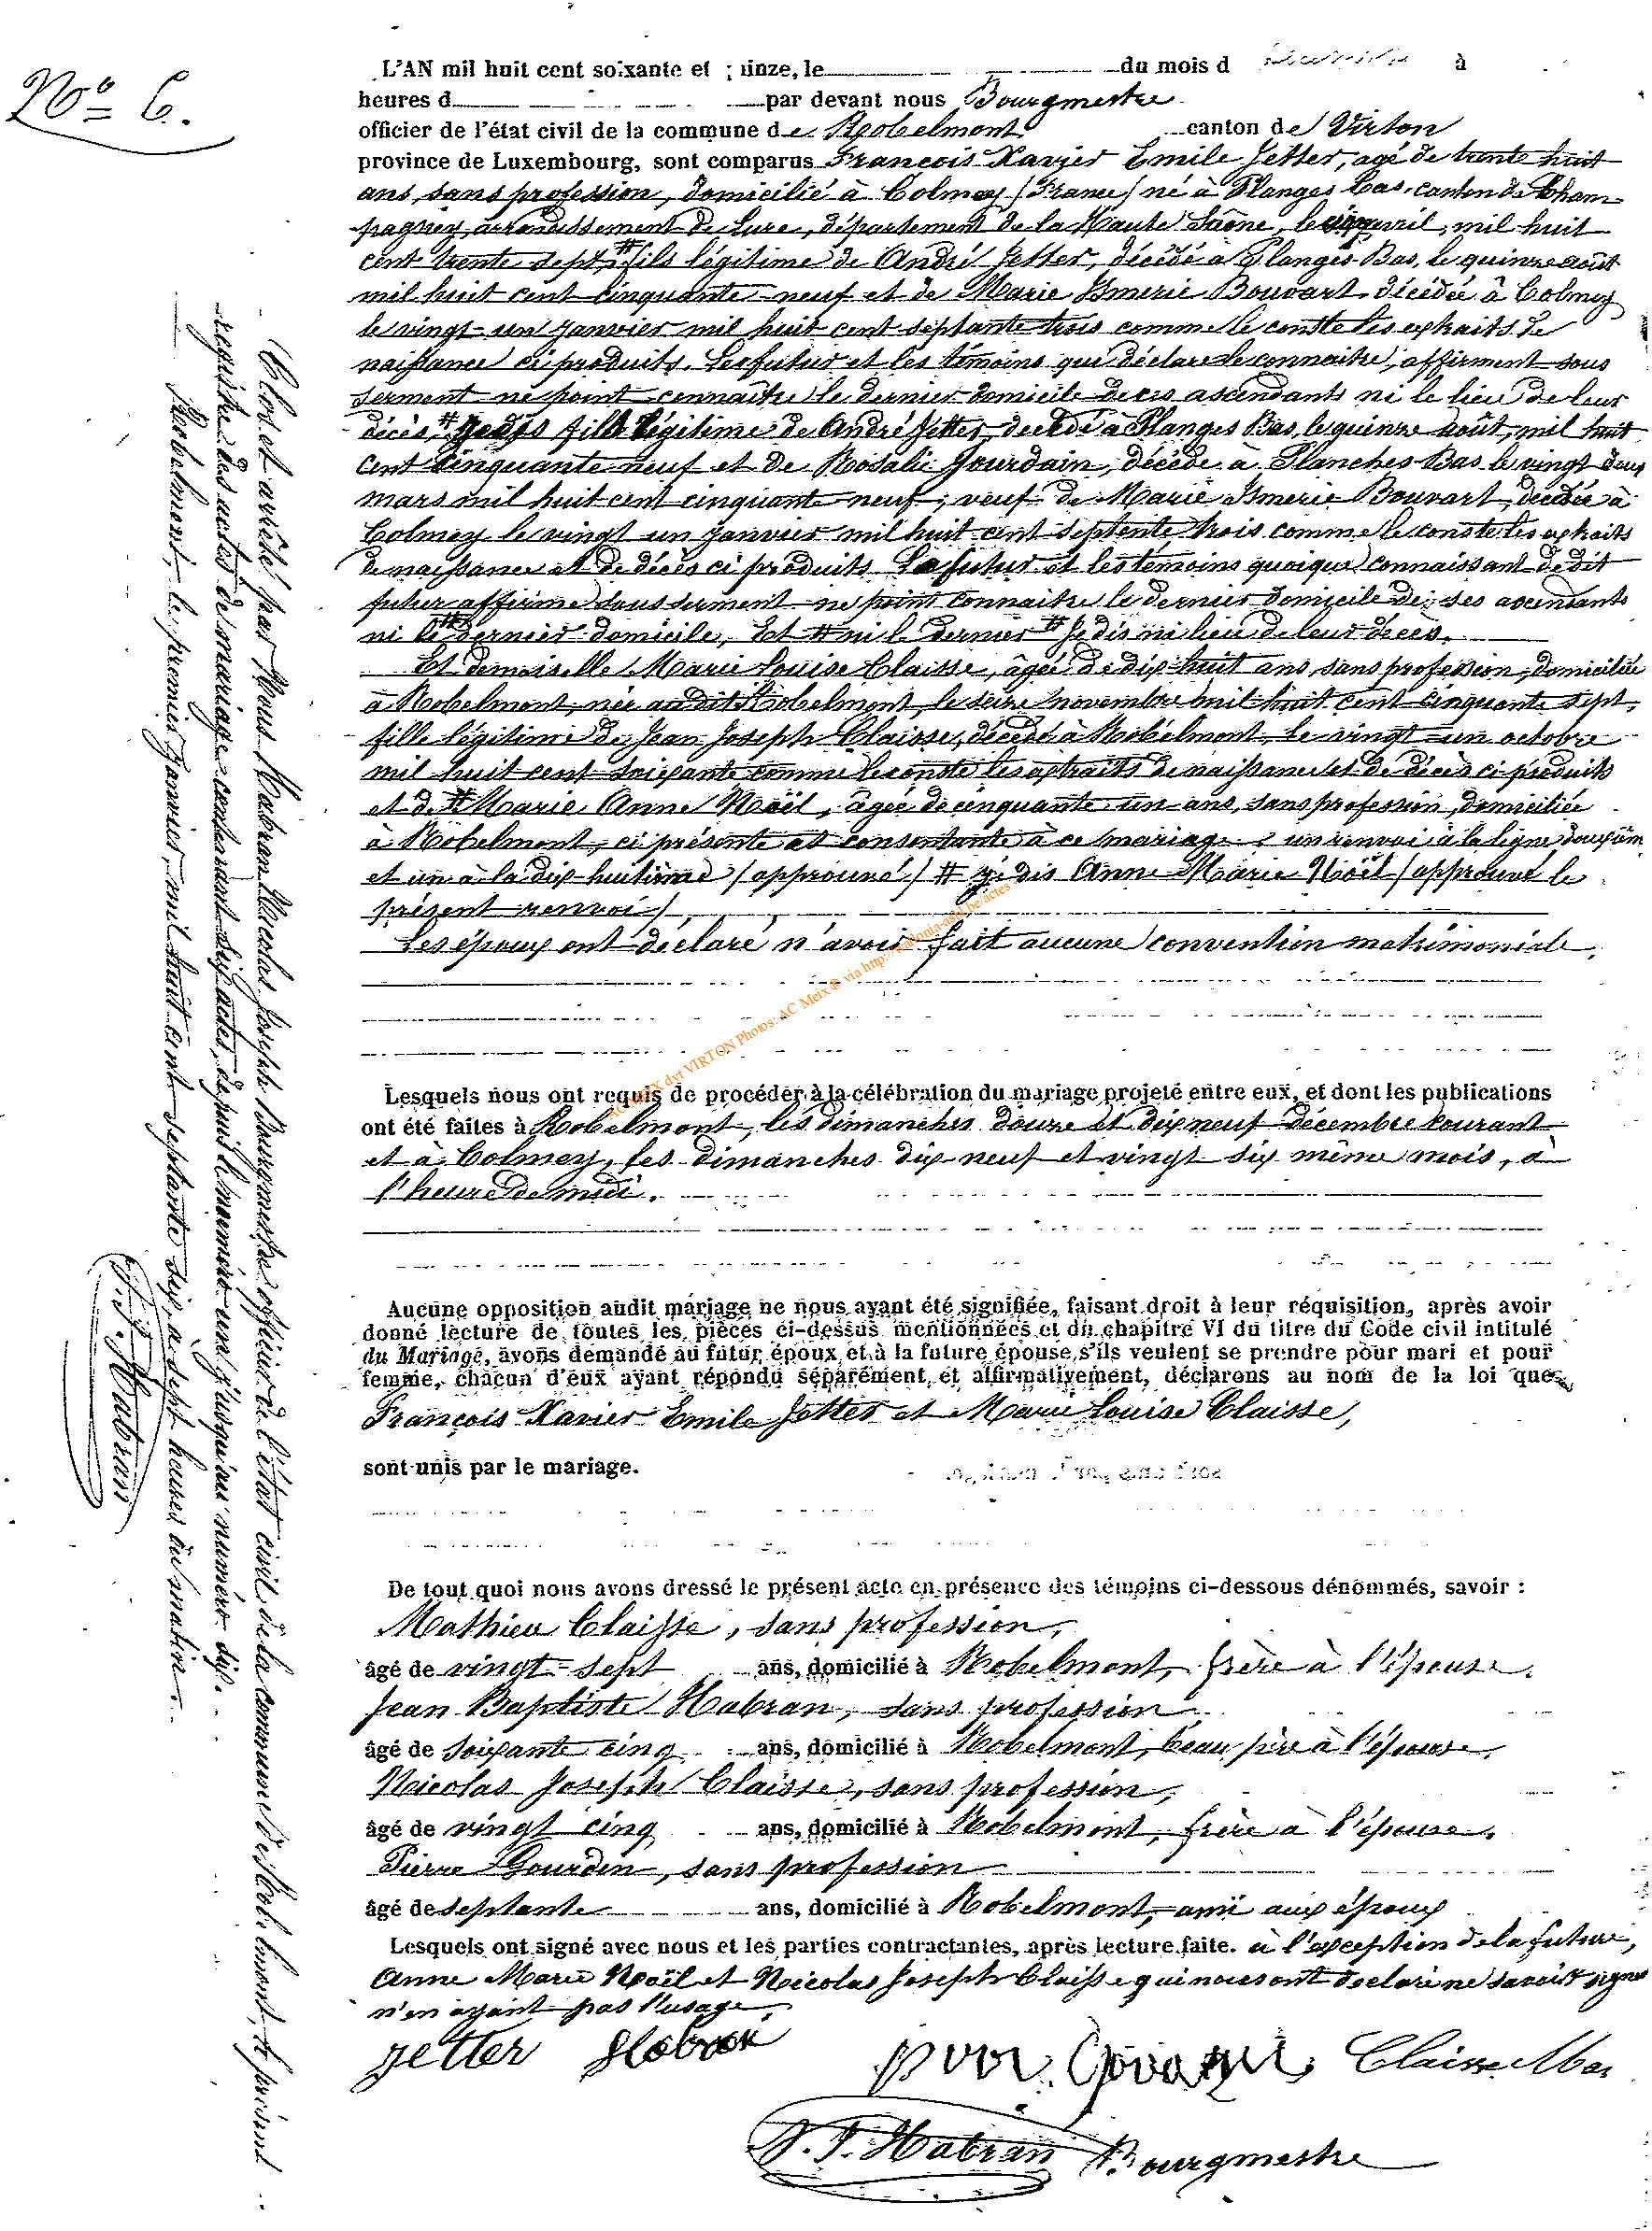 Nº 6.
L'AN mil huit cent soixante et inze, le du mois d à
heures d par devant nous Bourgmestre
officier de l'état civil de la commune de Robelmont canton de Virton
province de Luxembourg, sont comparus François Xavier Emile Jetter, agé de trente huit
ans, sans profession, domicilié à Colmey (France) né à Planges bas, canton de Cham-
pagney, arrondissement de Lure, département de la Haute Saône, le avril, mil huit
cent trente sept, # fils légitime de André Jetter, décédé à Planges Bas, le quinze août
mil huit cent cinquante-neuf et de Marie Ismerie Bouvart, décédée à Colmey
le vingt-un janvier mil huit cent septante trois comme le conste les extraits de
naissance ci produits. Les futur et les témoins qui déclare le connaitre, affirment sous
serment ne point connaitre le dernier domicile de ces ascendants ni le lieu de leur
décès, # je dis fils légitime de André Jetter, décédé à Planges Bas, le quinze août, mil huit
cent cinquante neuf et de Rosalie Jourdain, décédé à Planches-Bas le vingt deux
mars mil huit cent cinquante neuf, veuf de Marie Ismerie Bouvart, décédée à
Colmey le vingt un janvier mil huit cent septante trois comme le conste les extraits
de naissance et de décès ci produits Le futur et les témoins quoique connaissant le dit
futur affirme sous serment ne point connaitre le dernier domicile de ses ascendants
ni le dernier domicile, Et # ni le dernier # Je dis ni lieu de leur décès.
Et demoiselle Marie Louise Claisse, âgée de dix-huit ans, sans profession, domiciliée
à Robelmont, née audit Robelmont, le seize novembre mil huit cent cinquante sept,
fille légitime de Jean Joseph Claisse, décédé à Robelmont, le vingt-un octobre
mil huit cent soixante comme le conste les extraits de naissance et de décès ci produits
et de # Marie Anne Noël, âgée de cinquante-un ans, sans profession, domiciliée
à Robelmont, ci présente et consentante à ce mariage, un renvoi à la ligne
et un à la dix-huitième (approuvé) # je dis Anne Marie Noël (approuvé le
présent renvoi)
Les époux ont déclaré n'avoir fait aucune convention matrimoniale.
AC MEIX dvt VIRTON Photos: AC Meix © via http://
Lesquels nous ont requis de procéder à la célébration du mariage projeté entre eux, et dont les publications
ont été faites à Robelmont, les dimanches douze et dix neuf décembre courant
et à Colmey, les dimanches dix-neuf et vingt six même mois, à
l'heure de midi.
Aucune opposition audit mariage ne nous ayant été signifiée, faisant droit à leur réquisition, après avoir
donné lecture de toutes les pièces ci-dessus mentionnées et du chapitre VI du titre du Code civil intitulé
du Mariage, avons demandé au futur époux et à la future épouse s'ils veulent se prendre pour mari et pour
femme, chacun d'eux ayant répondu séparément et affirmativement, déclarons au nom de la loi que
François Xavier Emile Jetter et Marie Louise Claisse,
sont unis par le mariage.
De tout quoi nous avons dressé le présent acte en présence des témoins ci-dessous dénommés, savoir :
Mathieu Claisse, sans profession,
âgé de vingt-sept ans, domicilié à Robelmont, frère à l'épouse.
Jean Baptiste Habran, sans profession,
âgé de soixante cinq ans, domicilié à Robelmont, beau père à l'épouse,
Nicolas Joseph Claisse, sans profession,
âgé de vingt cinq ans, domicilié à Robelmont, frère à l'épouse,
Pierre Gourdin, sans profession
âgé de septante ans, domicilié à Robelmont, ami aux époux
Lesquels ont signé avec nous et les parties contractantes, après lecture faite. à l'exception de la future,
Anne Marie Noël et Nicolas Joseph Claisse qui nous ont déclaré ne savoir signer
n'en ayant pas l'usage.
Jetter Habran Claisse Mat
N. J. Habran Bourgmestre
Clos et arrêté par Nous Habran Nicolas Joseph Bourgmestre officier de l'état civil de la commune de Robelmont, le présent
registre des actes de mariage contenant dix actes, depuis le numéro un jusqu'au numéro dix.
Robelmont, le premier janvier, mil huit cent septante six, à sept heures du matin.
N. J. Habran